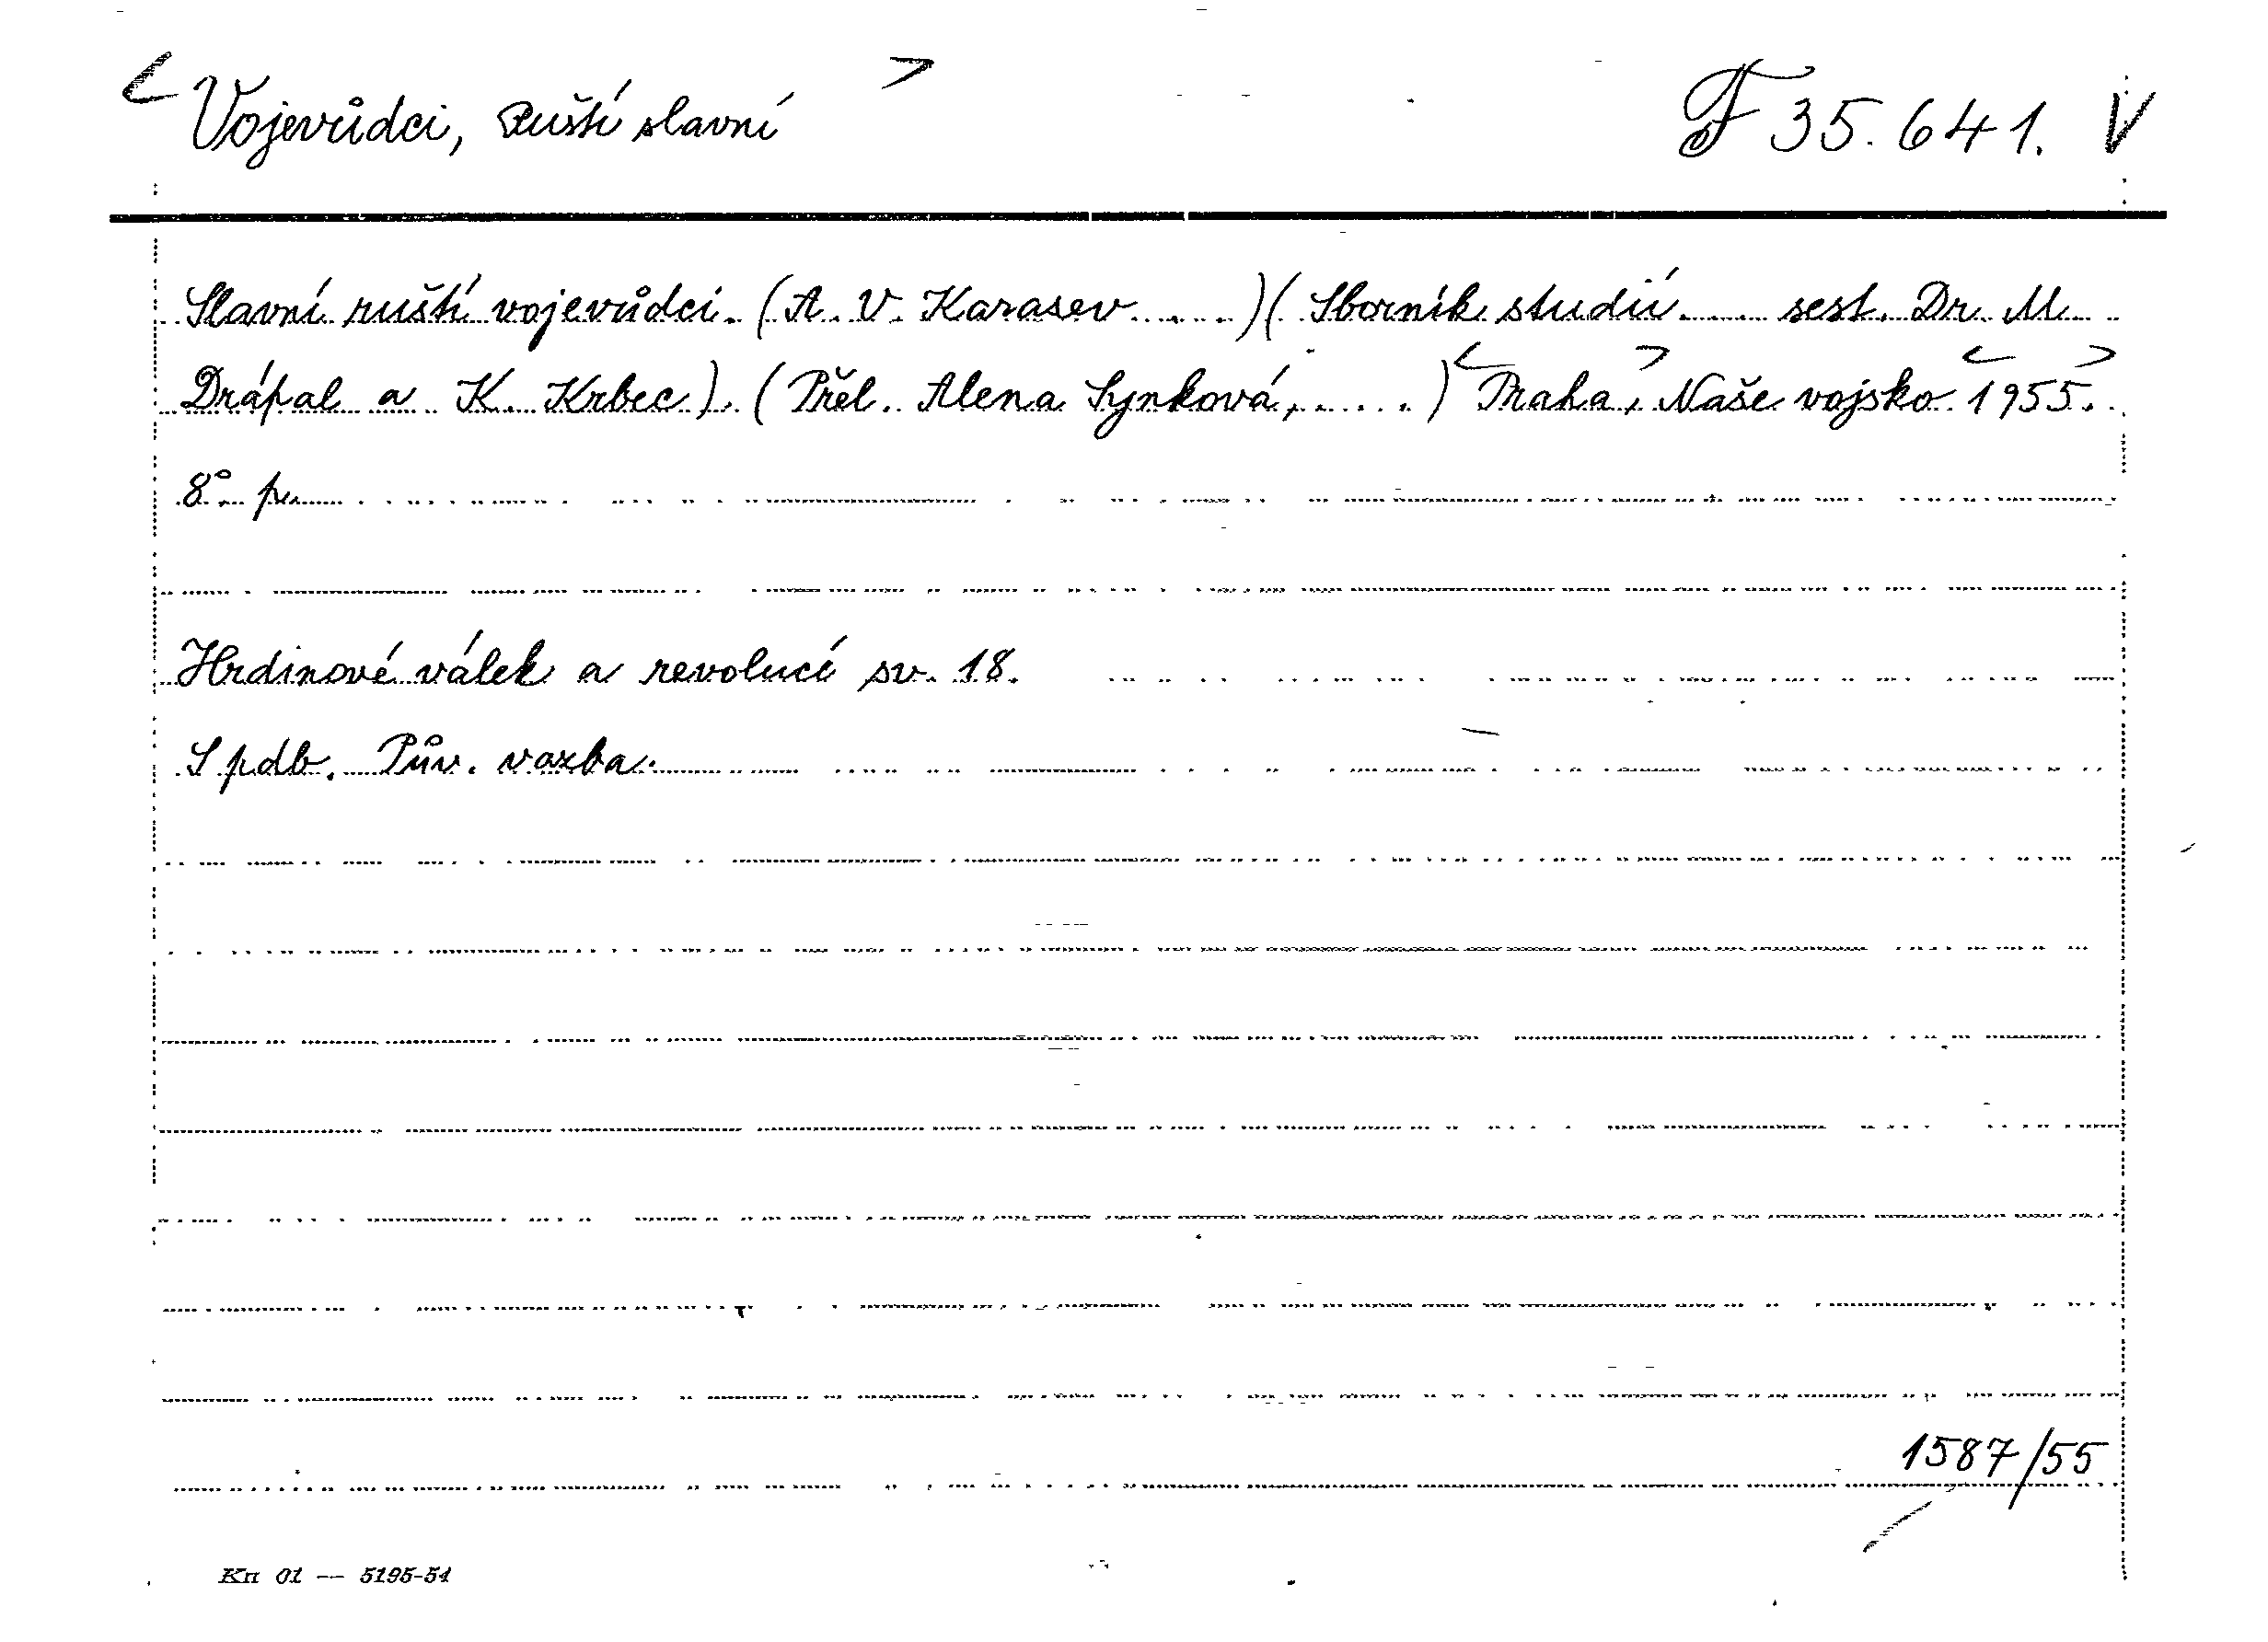 < Vojevůdci, Ruští slavní > F 35.641. V
Slavní ruští vojevůdci. (A. V. Karasev.....) (Sborník studií.... sest. Dr. M.
Drápal a K. Krbec). (Přel. Alena Synková,.....) <Praha,> Naše vojsko <1955.>
8°. p.
Hrdinové válek a revolucí sv. 18.
S pdb. Pův. vazba.
1587/55
Kn 01 — 5195-54